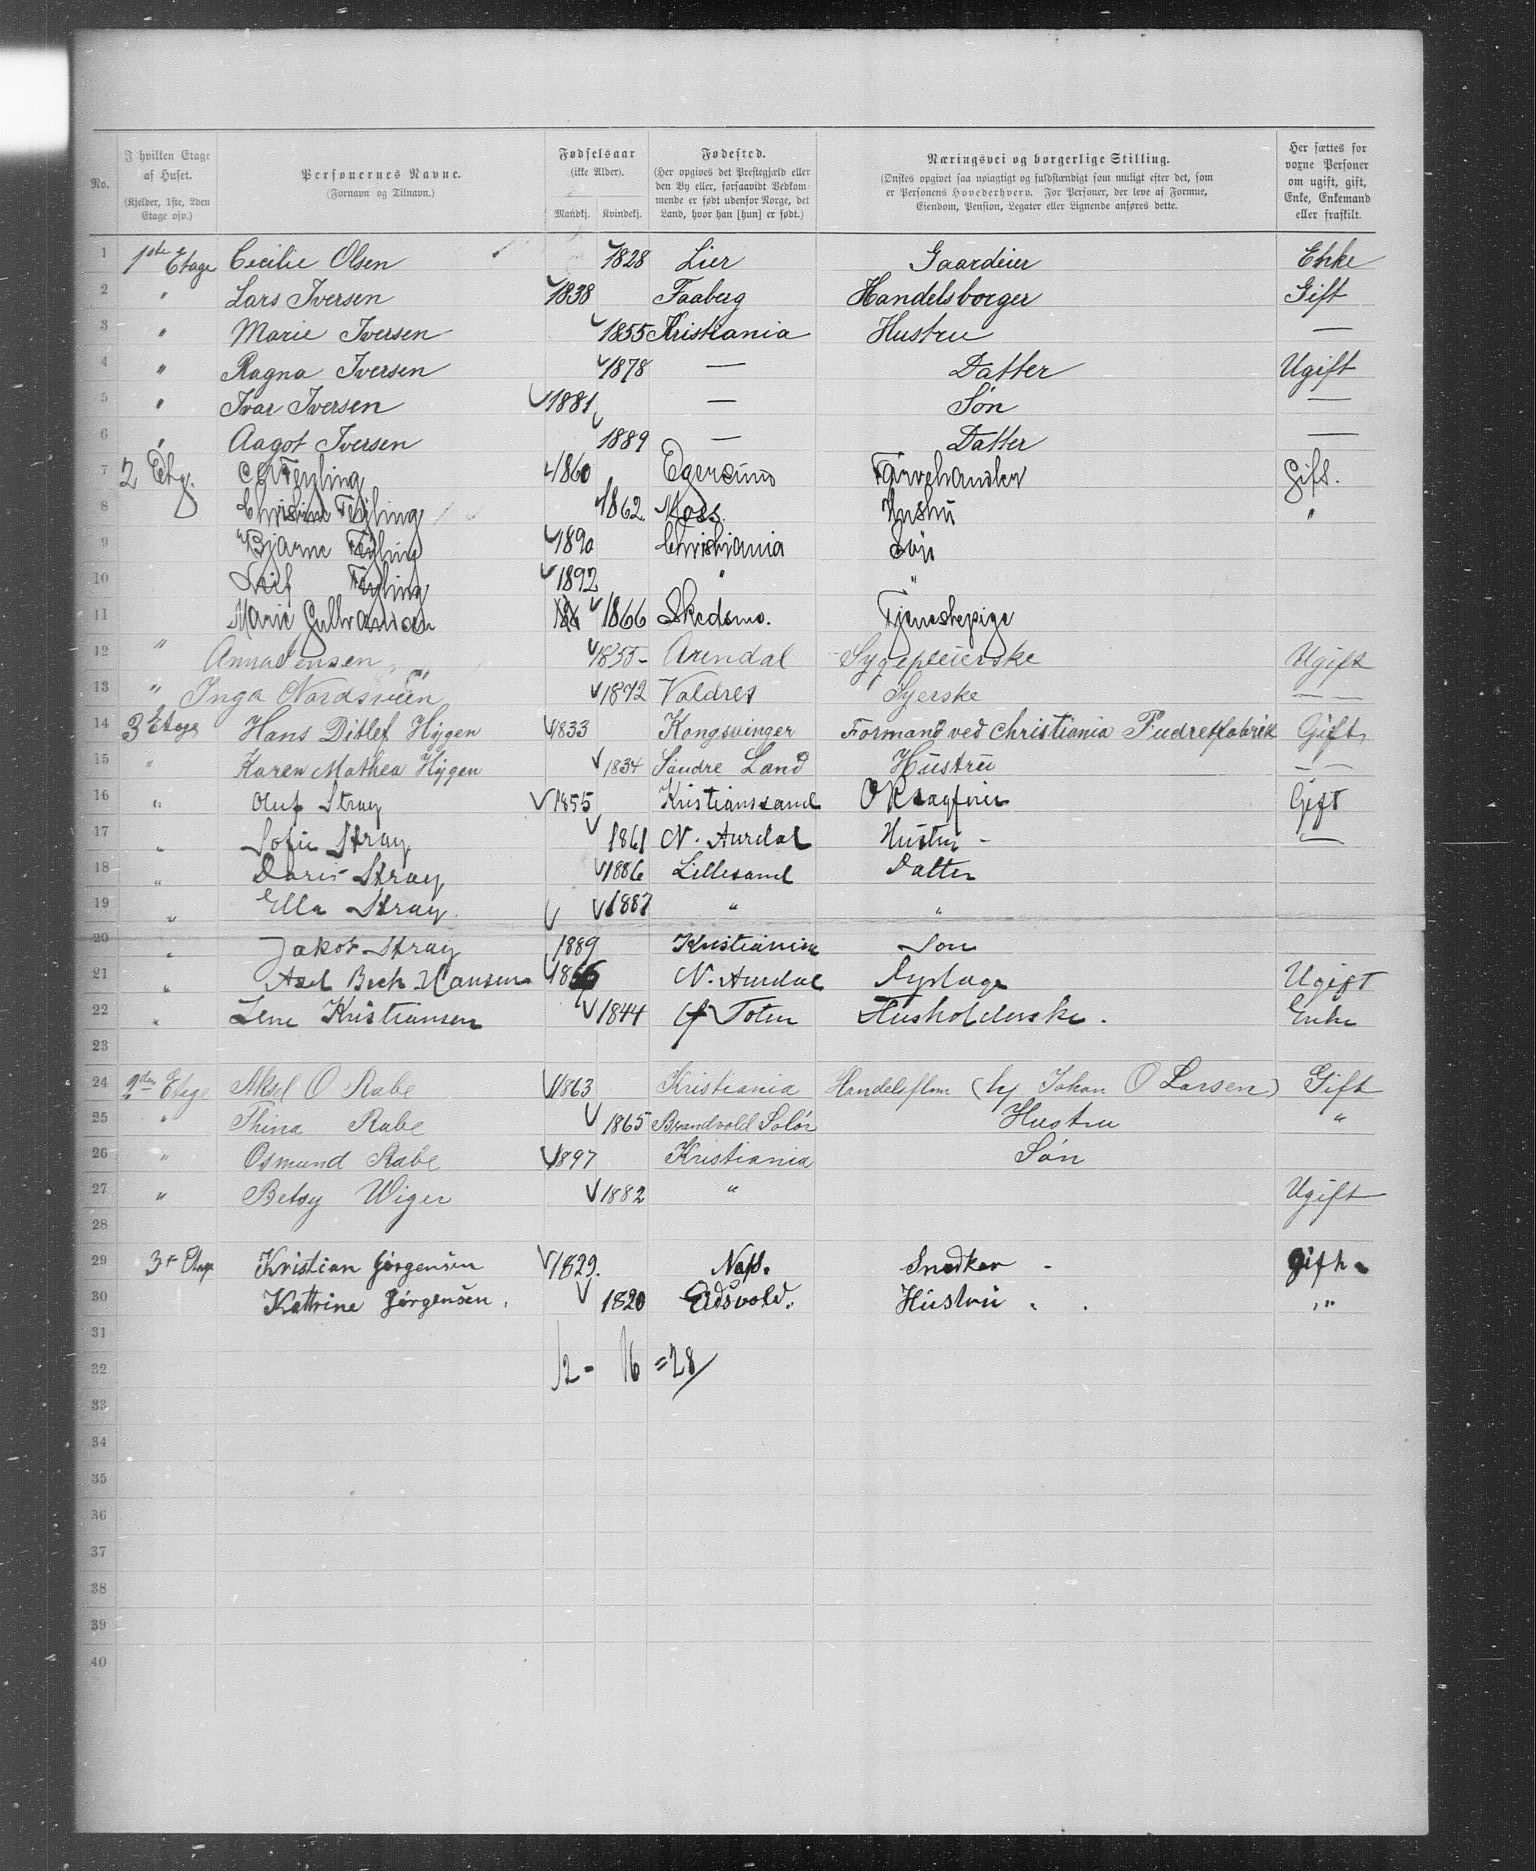 No. | I hvilken Etage af Huset. (Kjelder, 1ste, 2den Etage osv.) | Personernes Navne. (Fornavn og Tilnavn.) | Fødselsaar (ikke Alder). Mandkj. Kvindekj. | Fødested. (Her opgives det Prestegjæld eller den By eller, forsaavidt Vedkommende er født udenfor Norge, det Land, hvor han [hun] er født.) | Næringsvei og borgerlige Stilling. (Ønskes opgivet saa nøiagtigt og fuldstændigt som muligt efter det, som er Personens Hovederhverv. For Personer, der leve af Formue, Eiendom, Pension, Legater eller Lignende anføres dette.) | Her sættes for voxne Personer om ugift, gift, Enke, Enkemand eller fraskilt.
1 1ste Etage Cecilie Olsen 1828 Lier Gaardeier Enke
2 " Lars Iversen 1838 Faaberg Handelsborger Gift
3 " Marie Iversen 1855 Kristiania Hustru —
4 " Ragna Iversen 1878 — Datter Ugift
5 " Ivar Iversen 1881 — Søn —
6 " Aagot Iversen 1889 — Datter —
7 2 Etg. Feyling 1860 Egersund Farvehandler Gift.
8 Christine Feyling 1862. Moss. Hustru "
9 Bjarne Feyling 1890 Christiania Søn
10 Leif Feyling 1892 " "
11 Marie Gulbransen 1866 Skedsmo. Tjenestepige
12 " Anna Jensen 1855 - Arendal Sygepleierske Ugift
13 " Inga Nordsveen 1872 Valdres Syerske — —
14 3 Etage Hans Ditlef Hygen 1833 Kongsvinger Formand ved Christiania Pudretfabrik Gift
15 " Karen Mathea Hygen 1834 Søndre Land Hustru — —
16 " Oluf Stray 1855 Kristianssand O R Sagfører Gift
17 " Sofie Stray 1861 N. Aurdal Hustru - —
18 " Doris Stray 1886 Lillesand Datter
19 " Ella Stray. 1887 " "
20 " Jakob Stray 1889 Kristiania Søn
21 " Axel Bech Hansen 1866 N. Aurdal Dyrlæge Ugift
22 " Lene Kristiansen 1844 Ø Toten Husholderske. Enke
23
24 2den Etage Aksel O Rabe 1863 Kristiania Handelsflm (hj Johan O Larsen) Gift
25 " Thina Rabe 1865 Brandvold Solør Hustru "
26 " Osmund Rabe 1897 Kristiania Søn
27 " Betsy Wiger 1882 " Ugift
28
29 3 Etage Kristian Jørgensen 1829. Næs. Snedker - Gift.
30 Kathrine Jørgensen. 1820 Eidsvold. Hustru . . "
31
32 12 - 16 = 28/
33
34
35
36
37
38
39
40